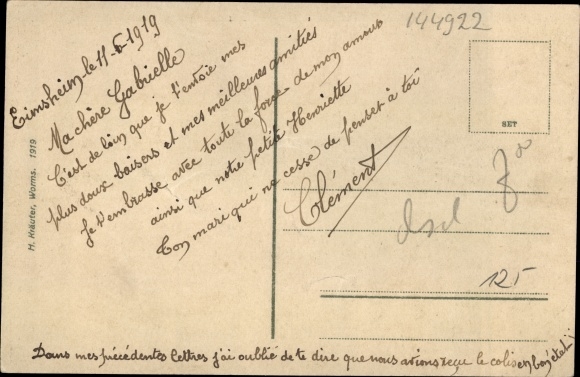 144922
Eimsheim le 11-6-1919
Ma chère Gabrielle
C'est de loin que je t'envoie mes
plus doux baisers et mes meilleures amitiés
Je t'embrasse avec toute la force de mon amour
ainsi que notre petite Henriette
Ton mari qui ne cesse de penser à toi
Clément
SET
H. Kräuter, Worms. 1919
125
Dans mes précédentes lettres j'ai oublié de te dire que nous avions reçu le colis en bon état